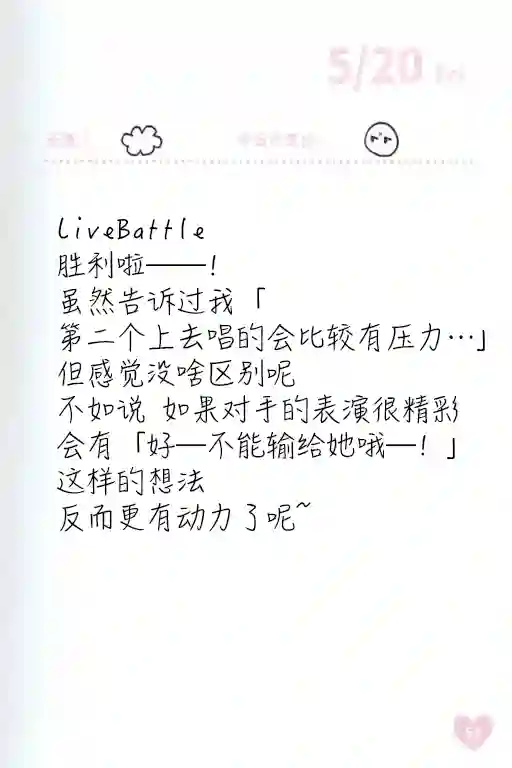 5/20 Fri
LiveBattle
胜利啦——！
虽然告诉过我「
第二个上去唱的会比较有压力…」
但感觉没啥区别呢
不如说 如果对手的表演很精彩
会有「好—不能输给她哦—！」
这样的想法
反而更有动力了呢~